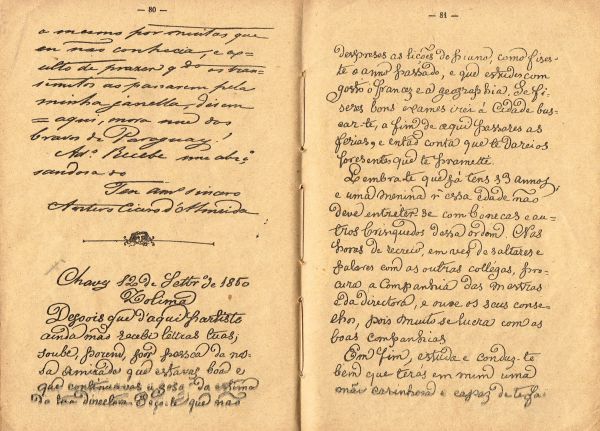 — 80 —
a mesmo por muitos que
eu não conhecia, e ex-
culto de prazer q.do os tran-
seuntos ao passarem pela
minha janella, disem
— aqui, mora um dos
bravos do Paraguay!
Ad.s Recebe um abr.ço
saudoso do
Teu am.º sincero
Antero Cicero d'Almeida
Chaves 12 de Settr.º de 1860
Zolima
Depois que d'aqui partiste
ainda não recebi lettras tuas;
soube, porem, por pessoa da nos-
sa amizade que estavas boa e
que continuavas a gosar da estima
da tua directora. Peço-te que não
— 81 —
despreses as lições de piano, como fizes-
te o anno passado, e que estudes com
gosto o francez e a geographia. Se fi-
zeres bons exames irei á Cidade bus-
car-te, a fim de aqui passares as
ferias, e então conta que te darei os
presentes que te prometti.
Lembra-te que já tens 13 annos,
e uma menina n'essa edade não
deve entreter-se com bonecas e ou-
tros brinquedos dessa ordem. Nas
horas de recreio, em vez de saltares e
palares com as outras collegas, pro-
cura a companhia das mestras
e da directora, e ouve os seus conse-
lhos, pois muito se lucra com as
boas companhias
Em fim, estuda e conduz-te
bem que terás em mim uma
mãe carinhosa e capaz de to-